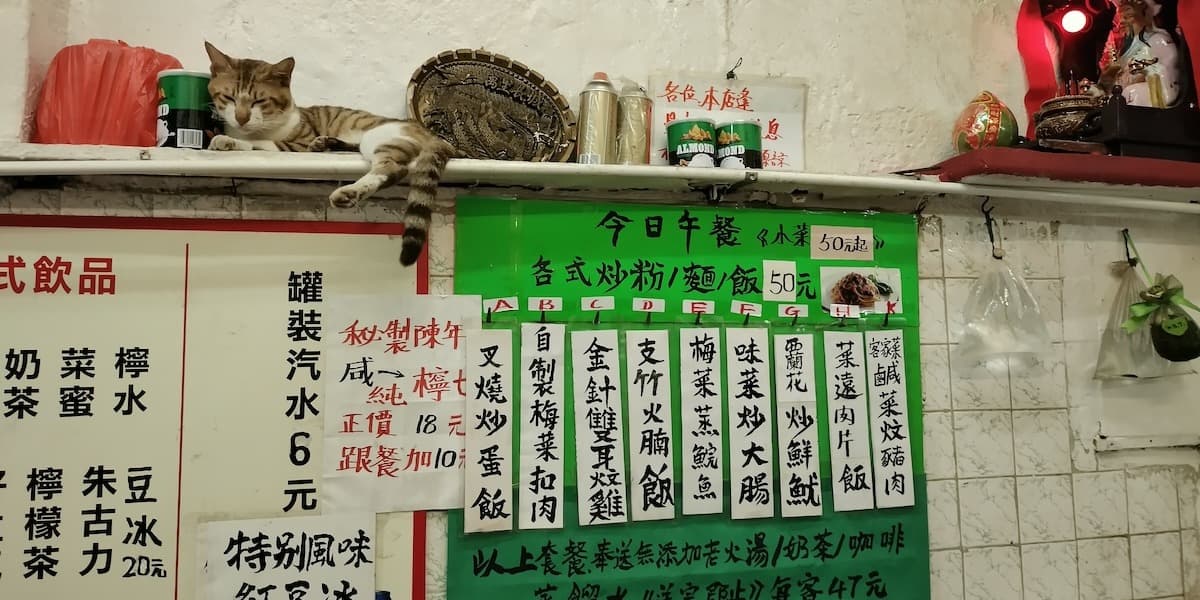 各位本店逢
息
ALMOND
MOND
式飲品
奶茶
菜蜜
檸水
檸檬茶
朱古力
豆冰
20元
罐裝汽水6元
秘製陳年
咸
純檸七
正價 18元
跟餐加10元
特别風味
紅豆冰
今日午餐《小菜 50元起》
各式炒粉/麵/飯 50元
A B C D E F G H K
叉燒炒蛋飯
自製梅菜扣肉
金針雙耳炆雞
支竹火腩飯
梅菜蒸鯇魚
味菜炒大腸
西蘭花炒鮮魷
菜遠肉片飯
客家菜 鹹菜炆豬肉
以上套餐奉送無添加老火湯/奶茶/咖啡
每客47元